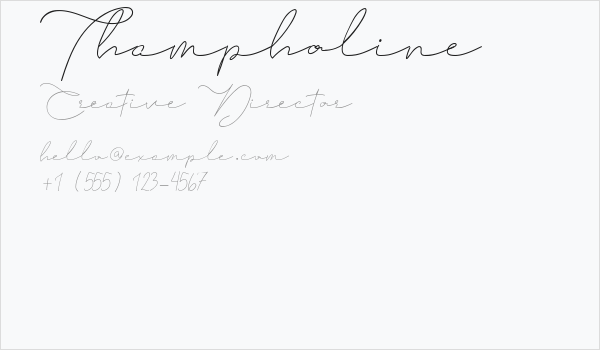 Thampholine
Creative Director
hello@example.com
+1 (555) 123-4567